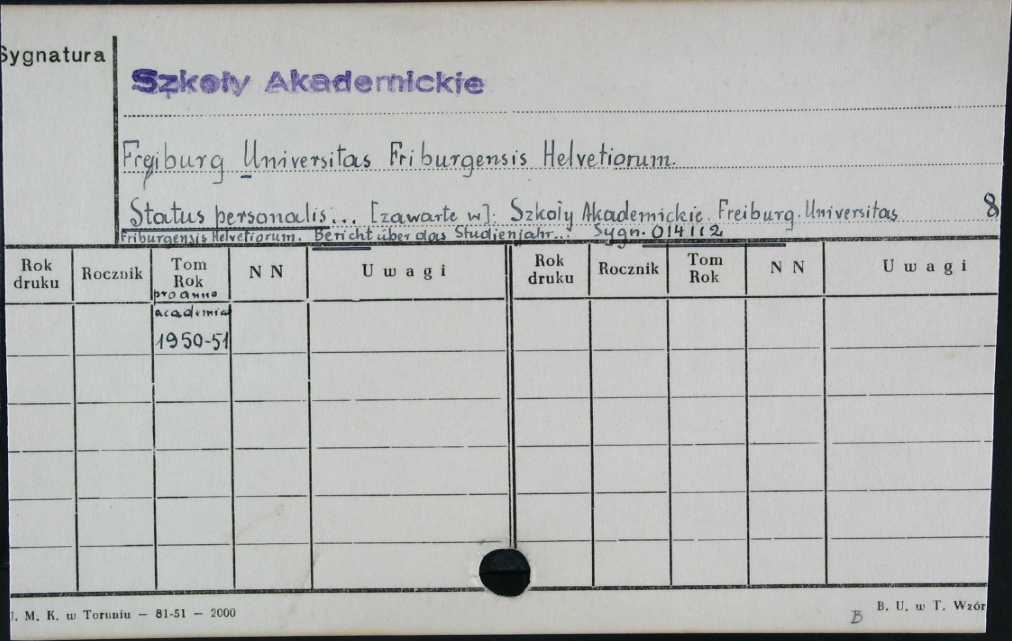 Sygnatura
Szkoły Akademickie
Freiburg Universitas Friburgensis Helvetiorum.
Status personalis... [zawarte w]: Szkoły Akademickie. Freiburg. Universitas 8
Friburgensis Helvetiorum. Bericht über das Studienjahr...: Sygn. 014112
Rok druku Rocznik Tom Rok N N Uwagi Rok druku Rocznik Tom Rok N N Uwagi
pro anno
academia
1950-51
J. M. K. w Toruniu — 81-51 — 2000
B B. U. w T. Wzór